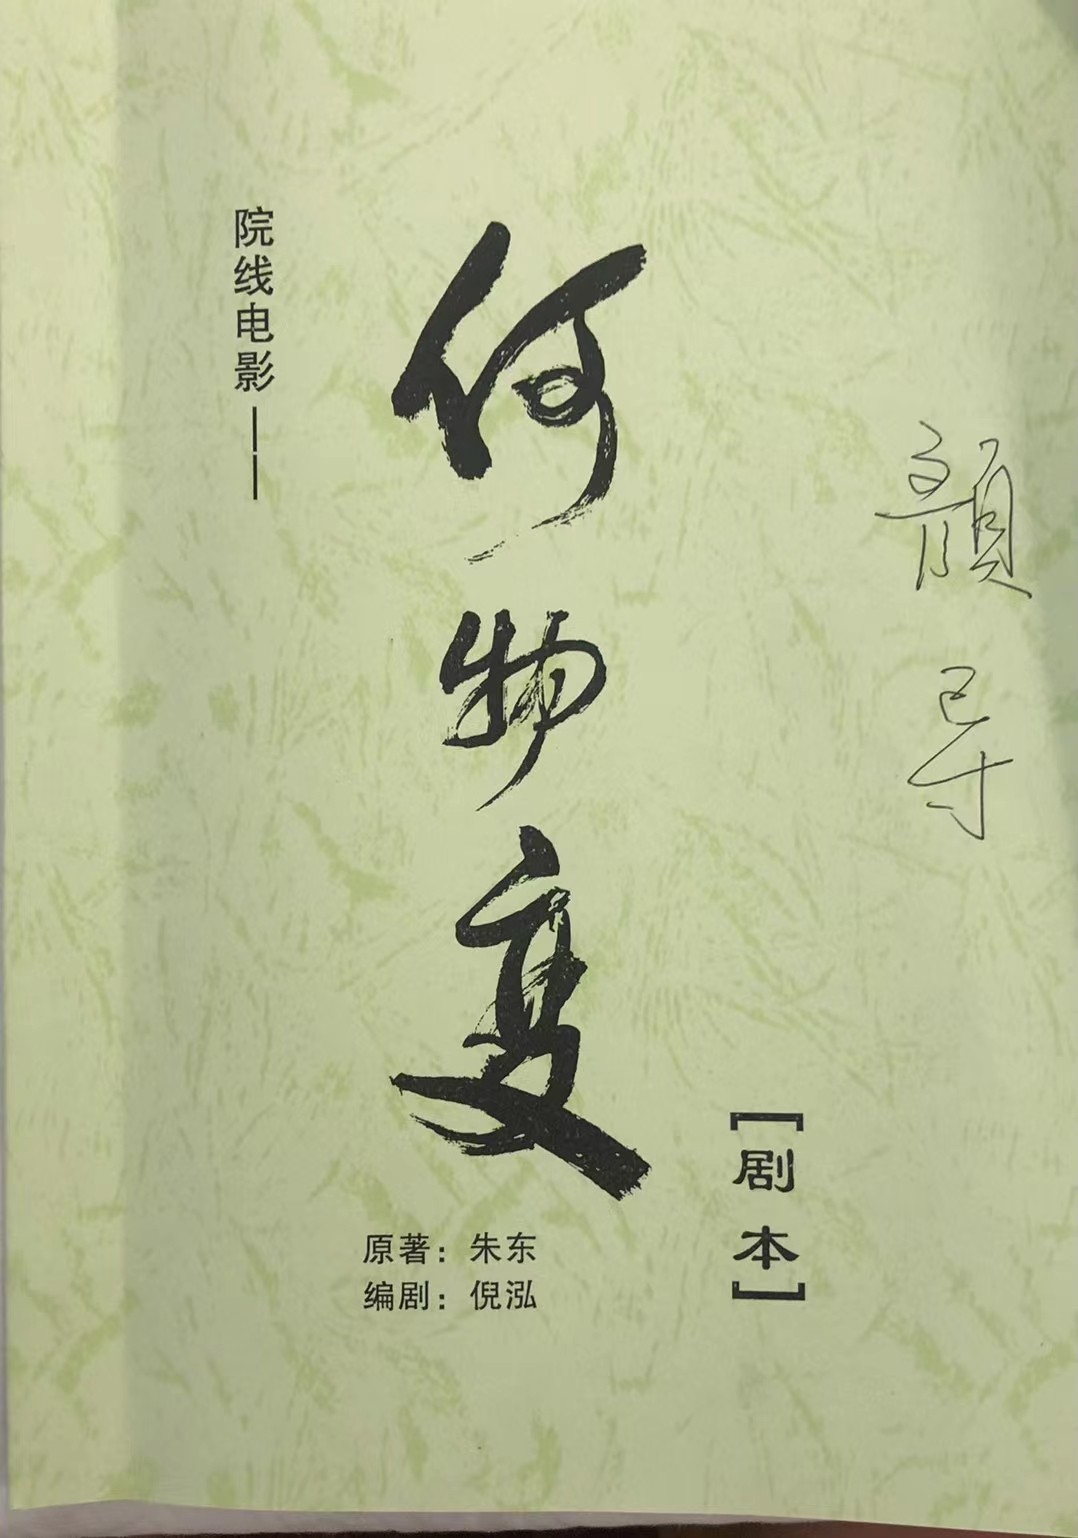 院线电影——
何物
原著：朱东
编剧：倪泓
[剧本]
颜导